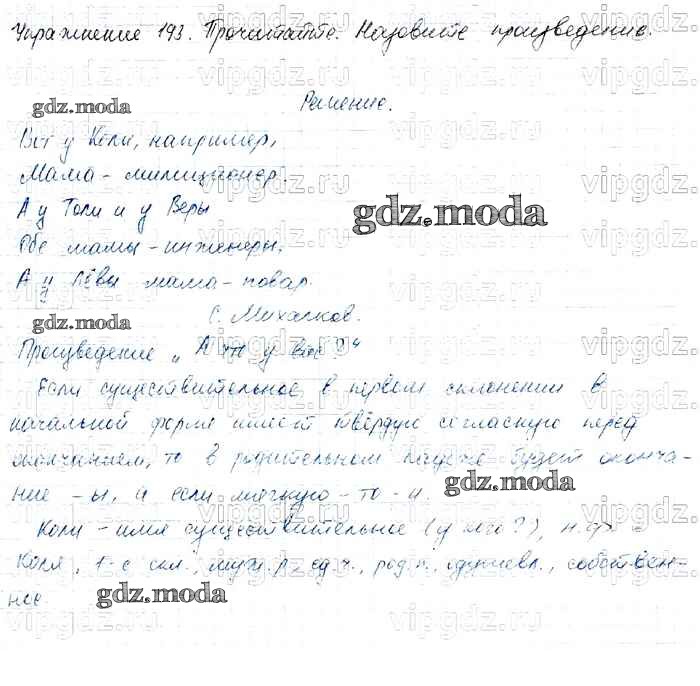 Упражнение 193. Прочитайте. Назовите произведение.
gdz.moda
Решение.
Вот у Коли, например,
Мама - милиционер.
А у Толи и у Веры
gdz.moda
Обе мамы - инженеры.
А у Лёвы мама - повар.
С. Михалков.
gdz.moda
Произведение „А что у вас?“
Если существительное в первом склонении в
начальной форме имеет твёрдую согласную перед
окончанием, то в родительном падеже будет оконча-
ние -ы, а если мягкую - то -и.
gdz.moda
Коли - имя существительное (у кого?), н.ф.
Коля, 1-е скл., муж. р., ед.ч., род.п., одушевл., собствен-
ное
gdz.moda
vipgdz.ru